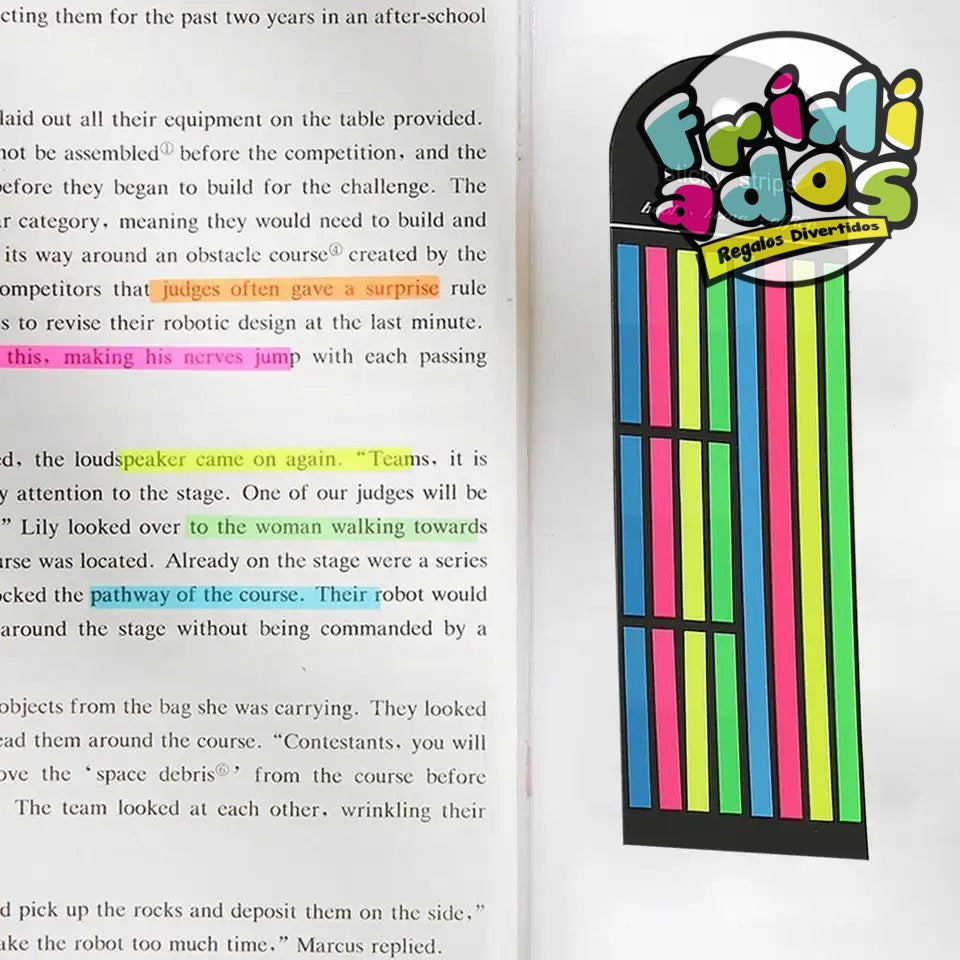 cting them for the past two years in an after-school
laid out all their equipment on the table provided.
not be assembled① before the competition, and the
before they began to build for the challenge. The
ar category, meaning they would need to build and
its way around an obstacle course④ created by the
ompetitors that judges often gave a surprise rule
s to revise their robotic design at the last minute.
this, making his nerves jump with each passing
ed, the loudspeaker came on again. “Teams, it is
y attention to the stage. One of our judges will be
” Lily looked over to the woman walking towards
urse was located. Already on the stage were a series
ocked the pathway of the course. Their robot would
around the stage without being commanded by a
objects from the bag she was carrying. They looked
ead them around the course. “Contestants, you will
ove the ‘space debris⑥’ from the course before
The team looked at each other, wrinkling their
d pick up the rocks and deposit them on the side,”
ake the robot too much time,” Marcus replied.
friki
ados
Regalos Divertidos
sticky strips